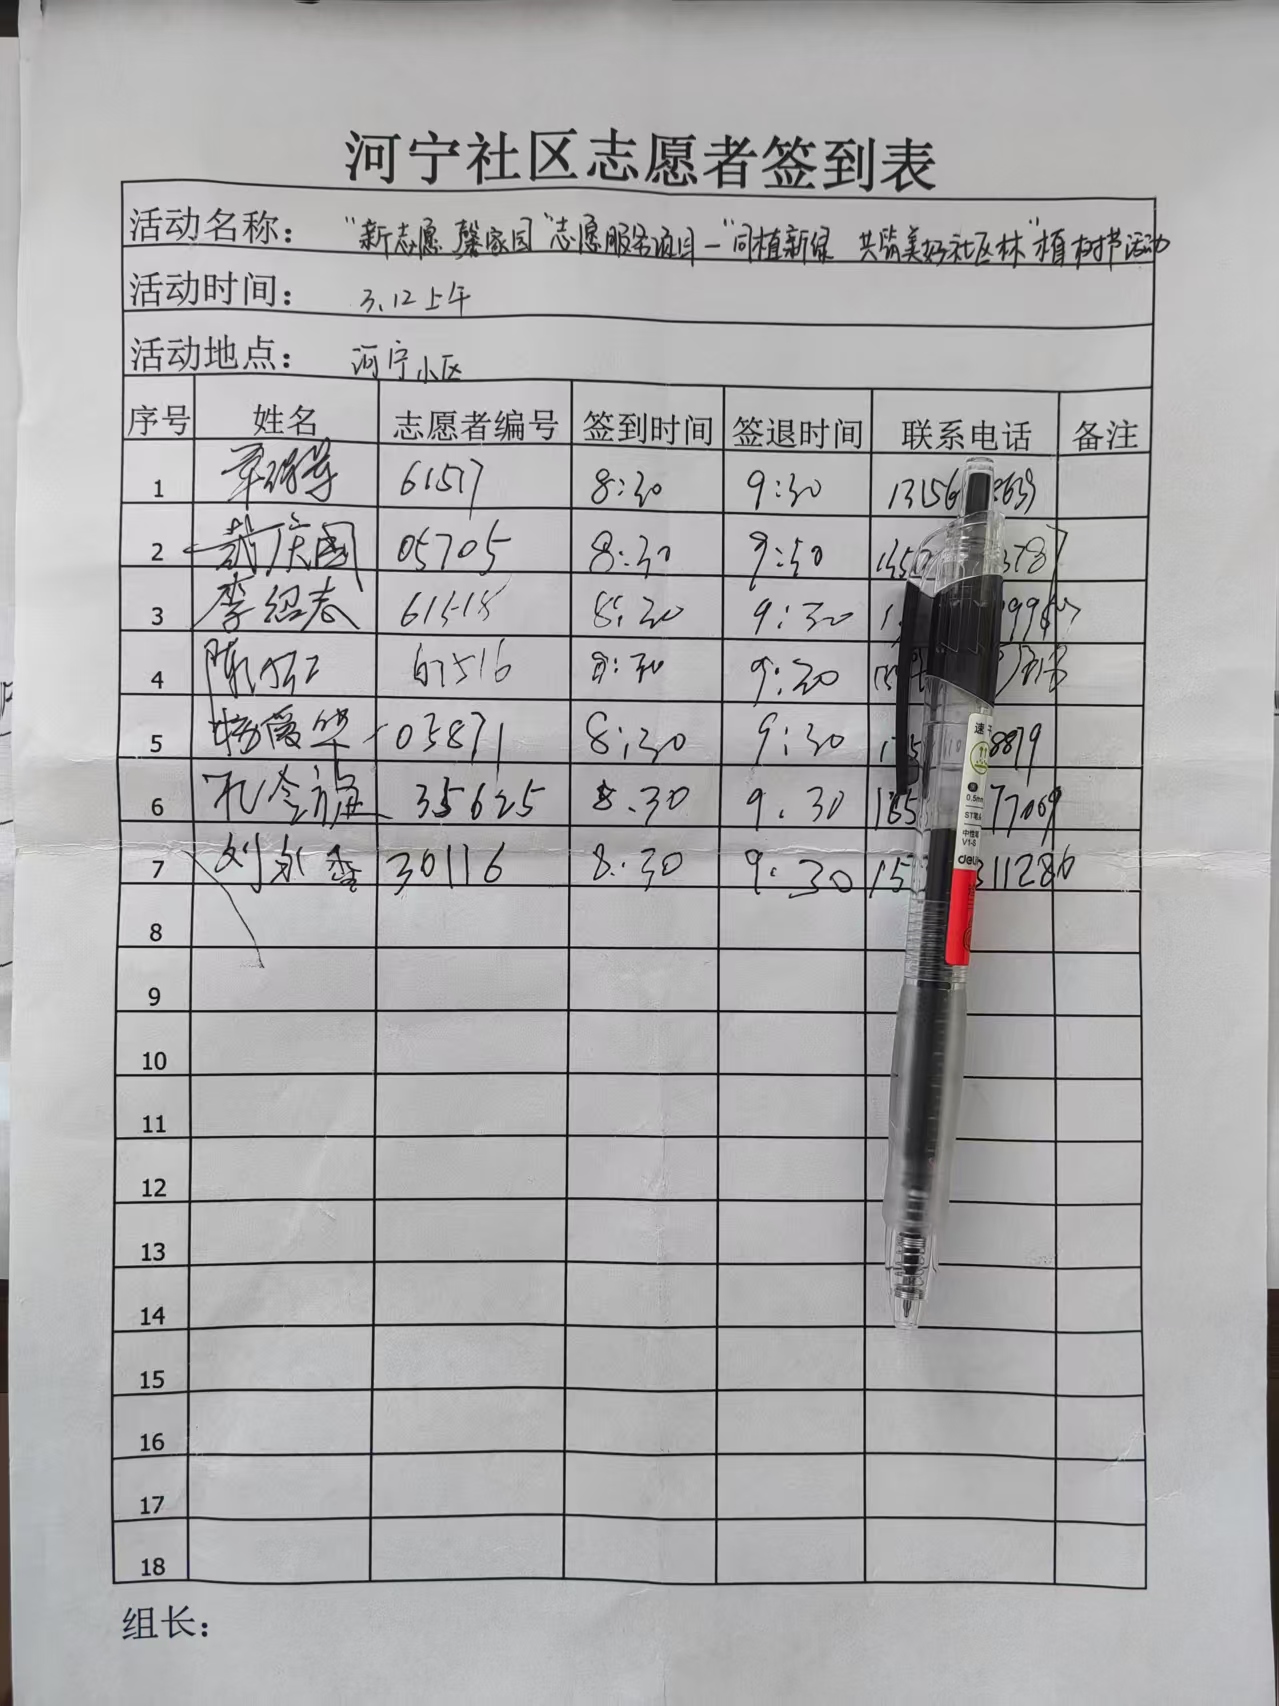 河宁社区志愿者签到表
活动名称： “新志愿 馨家园”志愿服务项目—“同植新绿 共筑美好社区林”植树节活动
活动时间： 3.12上午
活动地点： 河宁小区
序号 姓名 志愿者编号 签到时间 签退时间 联系电话 备注
1 61577 8:30 9:30 13156
2 庆国 05705 8:30 9:30
3 李绍志 61518 8:30 9:30
4 陈 67516 8:30 9:30
5 杨爱华 03871 8:30 9:30 8879
6 孔令海 35625 8.30 9.30 77069
7 刘永香 30116 8:30 9:30 15 311286
8
9
10
11
12
13
14
15
16
17
18
组长：
速干
0.5mm
ST笔头
中性笔
V1-S
deli